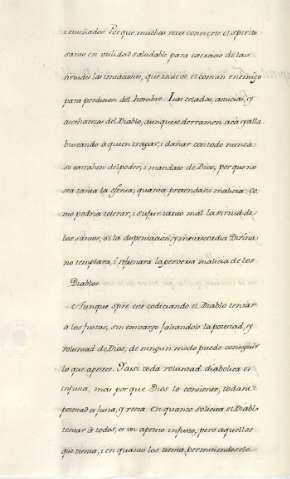 Porque muchas veces convierte el espiritu
santo en utilidad saludable para exercicio de las
virtudes las tentaciones, que mueve el comun enemigo
para perdicion del hombre. Las celadas, astucias, y
asechanzas del Diablo, aunque se derramen acà y allà
buscando à quien tragar, i dañar con todo nunca
se escriben del poder, i mandato de Dios, por que no
sea tanta la ofensa, quanta pretende su malicia. Co
mo podria tolerar, i sufrir tanto mal la virtud de
los santos, si la dispensacion, y misericordia Divina
no templara, i refrenara la perversa malicia de los
Diablos.
Aunque spre esté codiciando el Diablo tentar
à los justos, sin embargo faltandole la potestad, y
voluntad de Dios, de ningun modo puede conseguir
lo que apetece. Y assi toda voluntad diabolica es
injusta, mas por que Dios lo consiente, toda su
potestad es justa, y recta. En quanto solicita el Diablo
tentar à todos, es un apetito injusto, pero aquellos
que tienta, i en quanto los tienta, permitiendo